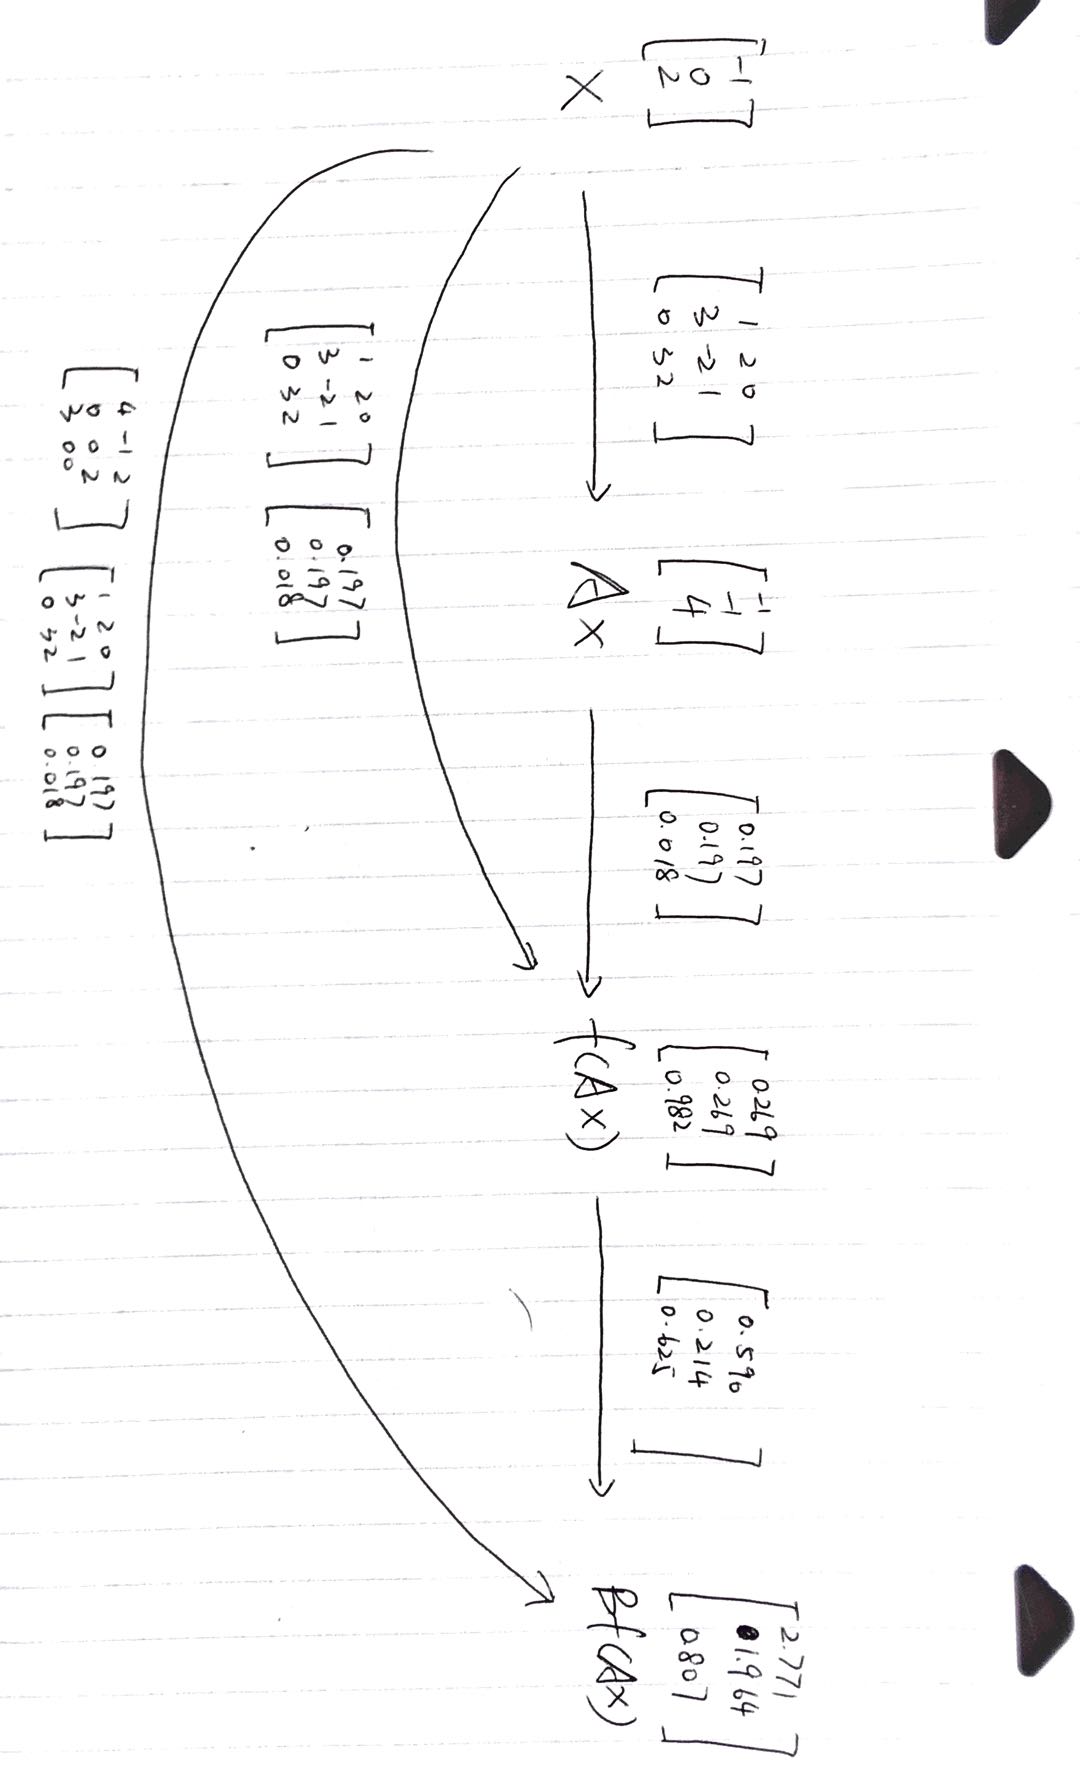 -1
0
2
1 2 0
3 -2 1
0 3 2
-1
-1
4
0.197
0.197
0.018
0.269
0.269
0.982
0.590
0.214
0.625
2.771
1.964
0.807
X
AX
f(AX)
Bf(AX)
1 2 0
3 -2 1
0 3 2
0.197
0.197
0.018
4 -1 2
0 0 2
3 0 0
1 2 0
3 -2 1
0 3 2
0.197
0.197
0.018